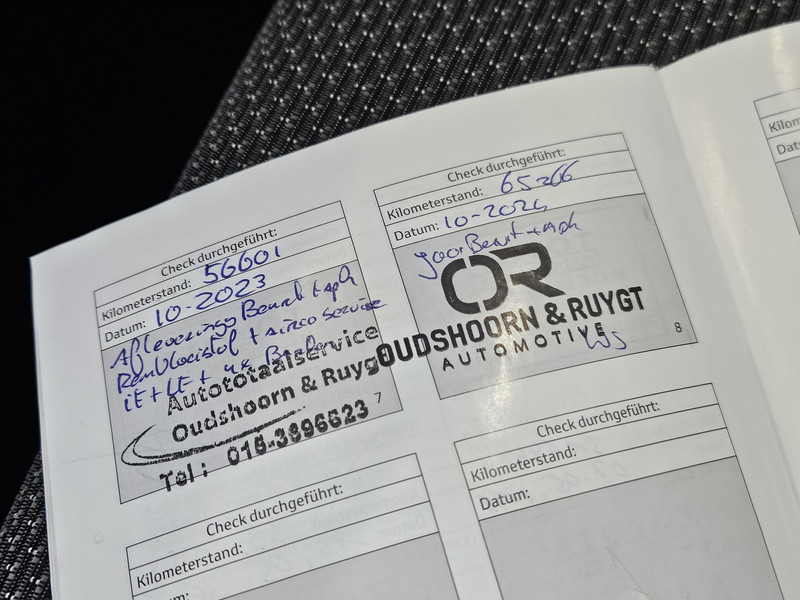 Check durchgeführt:
Kilometerstand: 56601
Datum: 10-2023
Afleverings Beurt + apk
Remvloeistof + airco service
Autototaalservice
Oudshoorn & Ruygt
Tel: 015-3696623
7
Check durchgeführt:
Kilometerstand: 65266
Datum: 10-2024
Jaar Beurt + apk
OR
OUDSHOORN & RUYGT
AUTOMOTIVE
8
Check durchgeführt:
Kilometerstand:
Check durchgeführt:
Kilometerstand:
Datum: